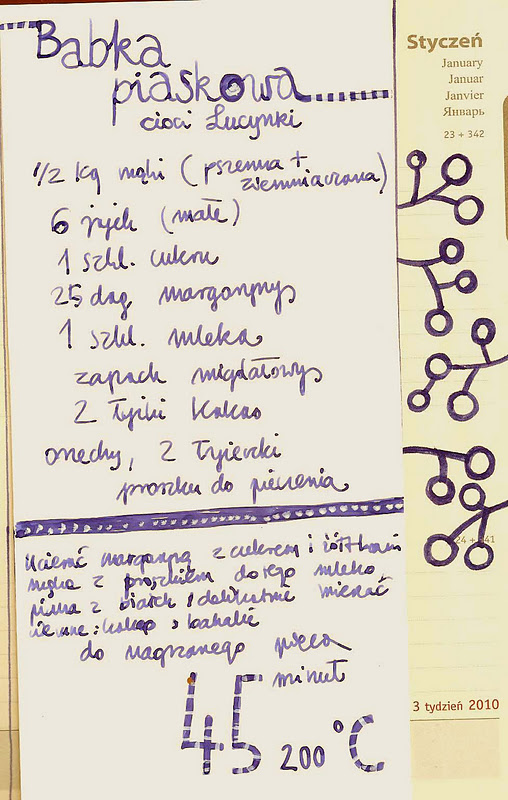 Babka
piaskowa
cioci Lucynki
1/2 kg mąki (pszenna +
ziemniaczana)
6 jajek (małe)
1 szkl. cukru
25 dag margaryny
1 szkl. mleka
zapach migdałowy
2 łyżki kakao
orzechy, 2 łyżeczki
proszku do pieczenia
Ucierać margarynę z cukrem i żółtkami
mąka z proszkiem do tego mleko
piana z białek i delikatnie mieszać
ciemne: kakao i bakalie
do nagrzanego pieca
45 minut
200 °C
Styczeń
January
Januar
Janvier
Январь
23 + 342
24 + 341
3 tydzień 2010